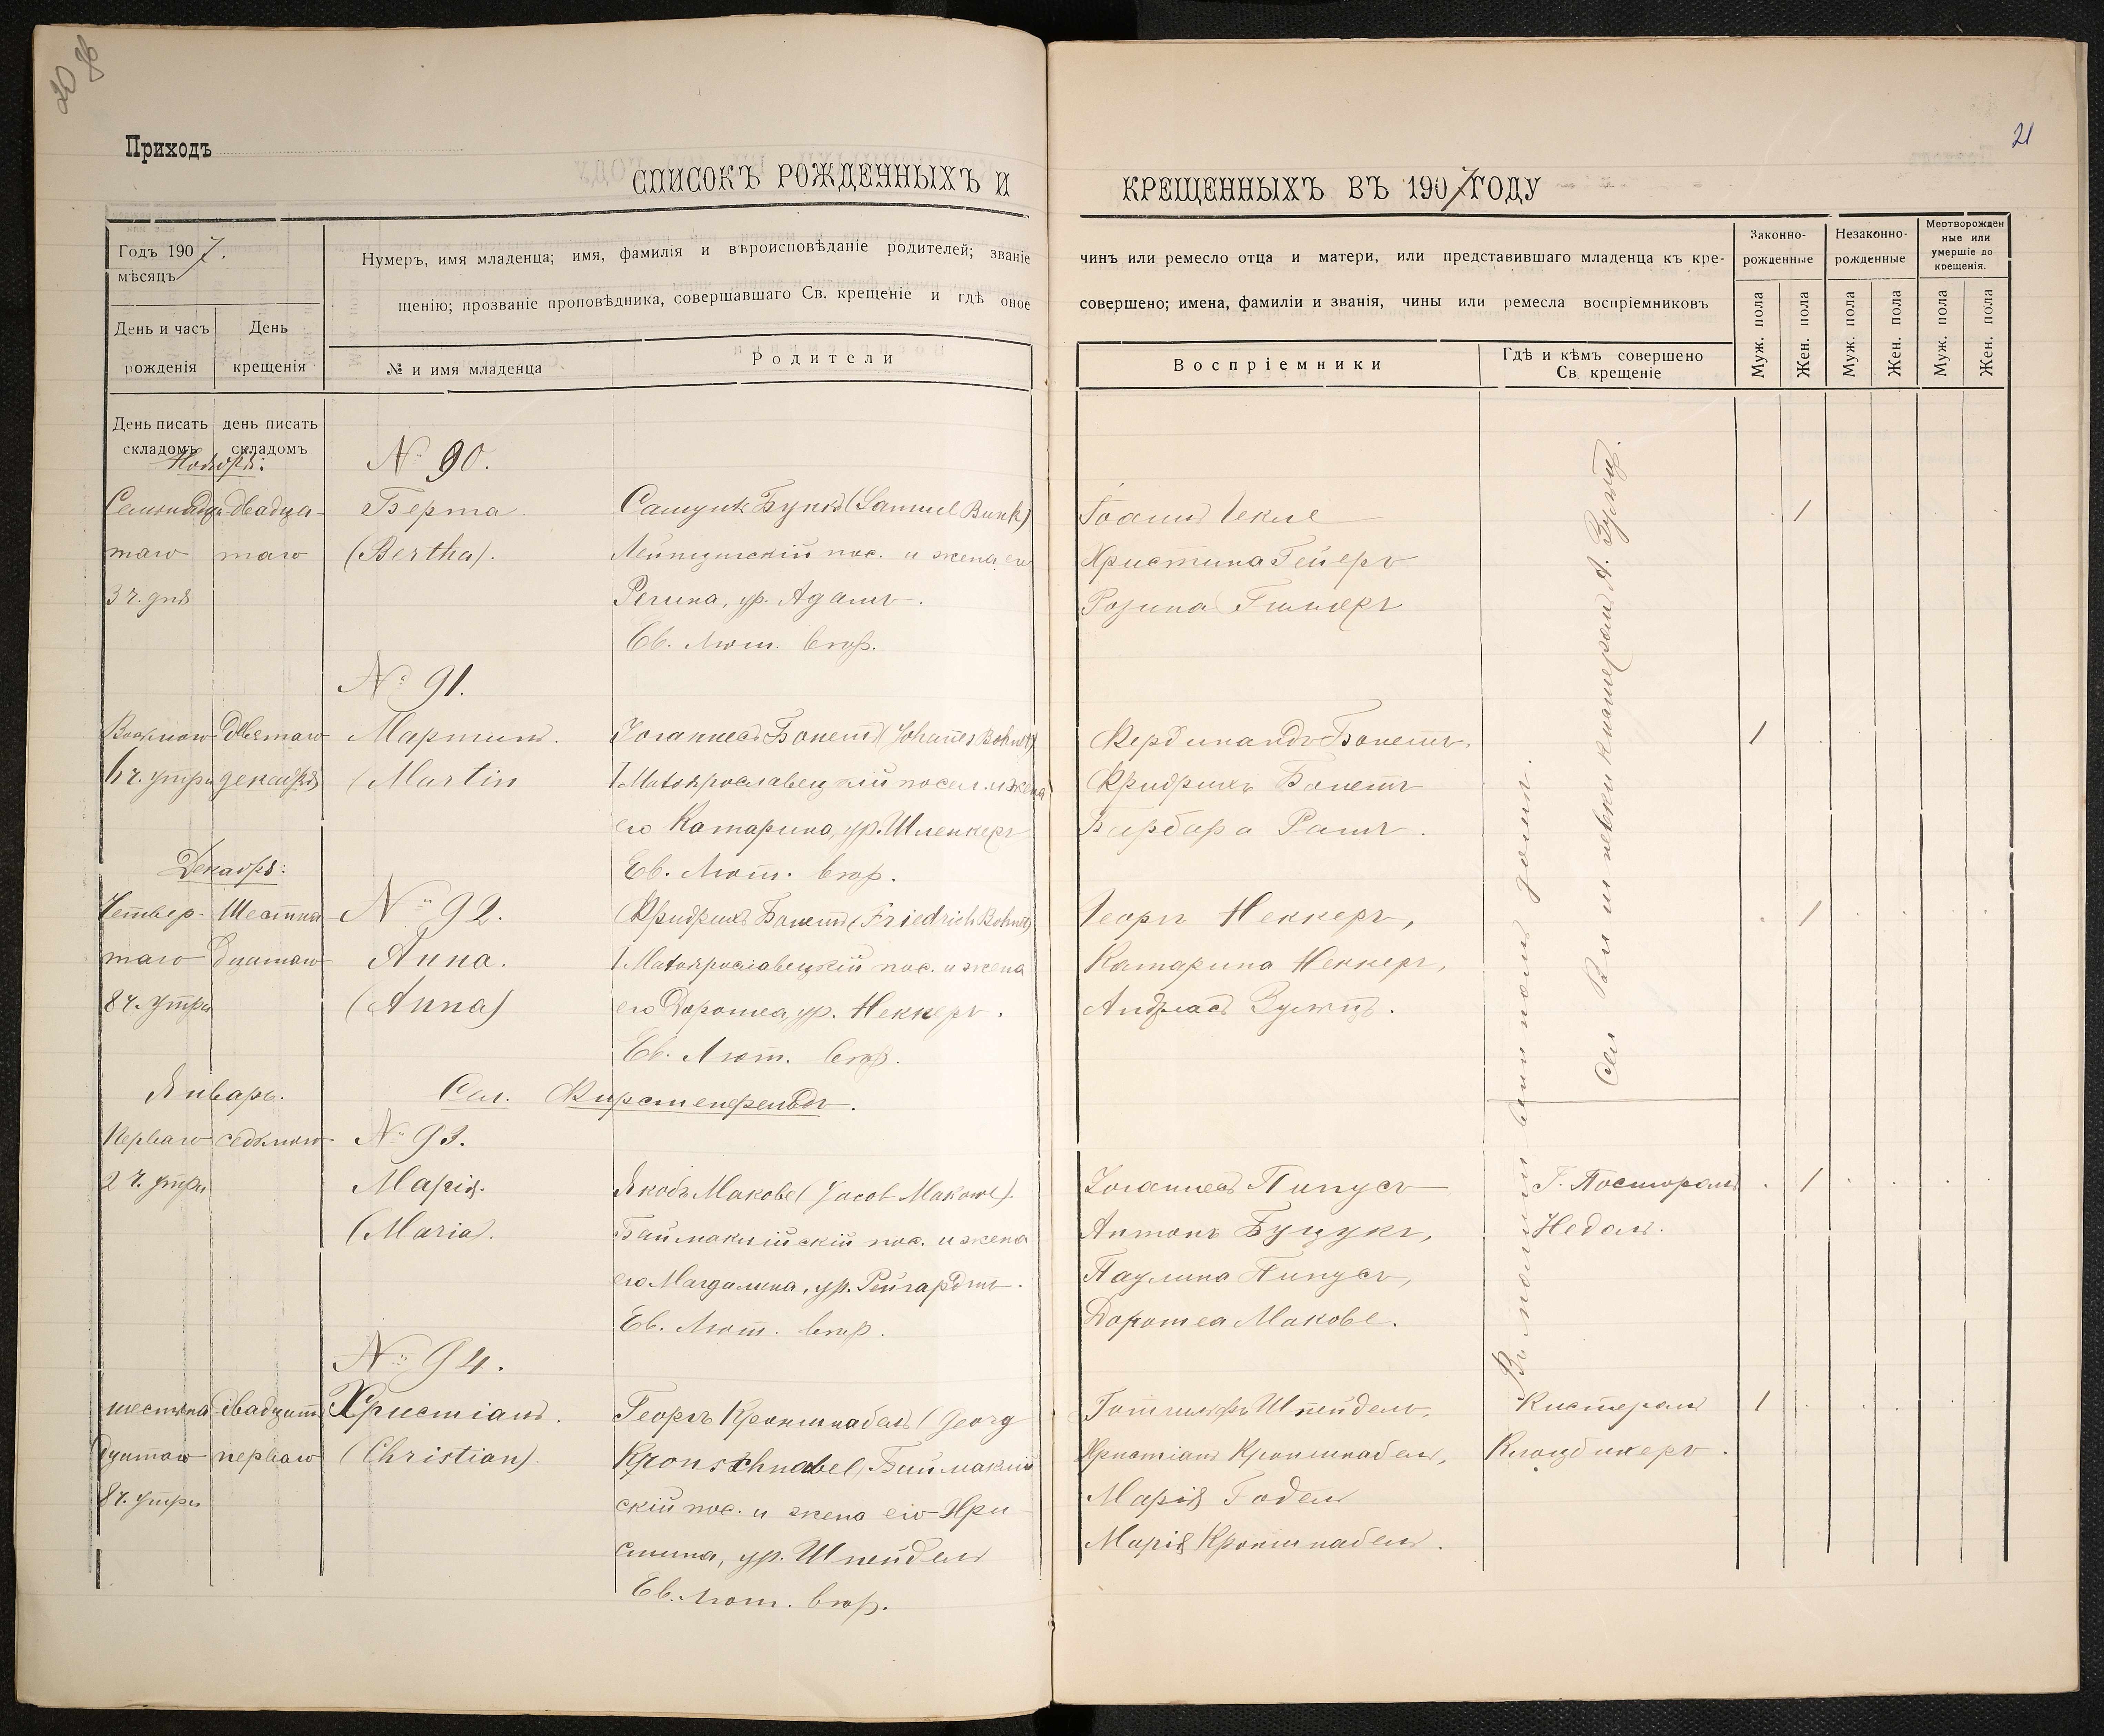 20
21
Приходъ
СПИСОКЪ РОЖДЕННЫХЪ И
КРЕЩЕННЫХЪ ВЪ 1907 ГОДУ
Годъ 1907.
мѣсяцъ
Нумеръ, имя младенца; имя, фамилія и вѣроисповѣданіе родителей; званіе
щенію; прозваніе проповѣдника, совершавшаго Св. крещеніе и гдѣ оное
чинъ или ремесло отца и матери, или представившаго младенца къ кре-
совершено; имена, фамиліи и званія, чины или ремесла воспріемниковъ
День и часъ рожденія
День крещенія
№ и имя младенца
Родители
Воспріемники
Гдѣ и кѣмъ совершено
Св. крещеніе
Законно-
рожденные
Незаконно-
рожденные
Мертворожден
ные или
умершіе до
крещенія.
Муж. пола
Жен. пола
Муж. пола
Жен. пола
Муж. пола
Жен. пола
День писать складомъ
день писать складомъ
Ноября:
№ 90.
Семнадца-
таго
3 ч. дня
двадца-
таго
Берта
(Bertha).
Самуилъ Бункъ (Samuel Bunk)
Лейпцигскій пос. и жена его
Регина, ур. Адамъ.
Ев. Лют. вѣр.
Христина Гейеръ
Розина
1
№ 91.
6 ч. утра
Девятаго
декабря
Мартинъ.
(Martin
Іоганнесъ Бонетъ (Johannes Bohnet)
I Малоярославецкій посел. и жена
его Катарина, ур. Шленкеръ
Ев. Лют. вѣр.
Фердинандъ Бонетъ,
Фридрихъ Бонетъ
Барбара Рашъ.
1
Декабря:
Четвер-
таго
8 ч. утра
Шестна
дцатаго
№ 92.
Анна.
(Anna)
Фридрихъ Бонетъ (Friedrich Bohnet)
I Малоярославецкій пос. и жена
его Доротеа, ур. Неккеръ.
Ев. Лют. вѣр.
Георгъ Неккеръ,
Катарина Неккеръ,
Андреасъ
1
Въ молитвенномъ домѣ.
Января.
Сел. Фирстенфельдъ.
Перваго
2 ч. утра
седьмого
№ 93.
Марія.
(Maria).
Якобъ Макове (Jacob Makowe).
Баймаклійскій пос. и жена
его Магдалина, ур. Рейгардтъ.
Ев. Лют. вѣр.
Іоганнесъ Пипусъ
Антонъ Буцукъ,
Паулина Пипусъ,
Доротеа Макове.
Г. Пасторомъ
1
№ 94.
шестна
дцатаго
8 ч. утра
двадцать
перваго
Христіанъ.
(Christian).
Георгъ Кроншнабель (Georg
Kronschnabel, Баймаклій
скій пос. и жена его Хри
стина, ур. Шпейдель
Ев. Лют. вѣр.
Готлифъ Шпейдель,
Христіанъ Кроншнабель,
Марія Годель
Марія Кроншнабель.
Кистеромъ
1